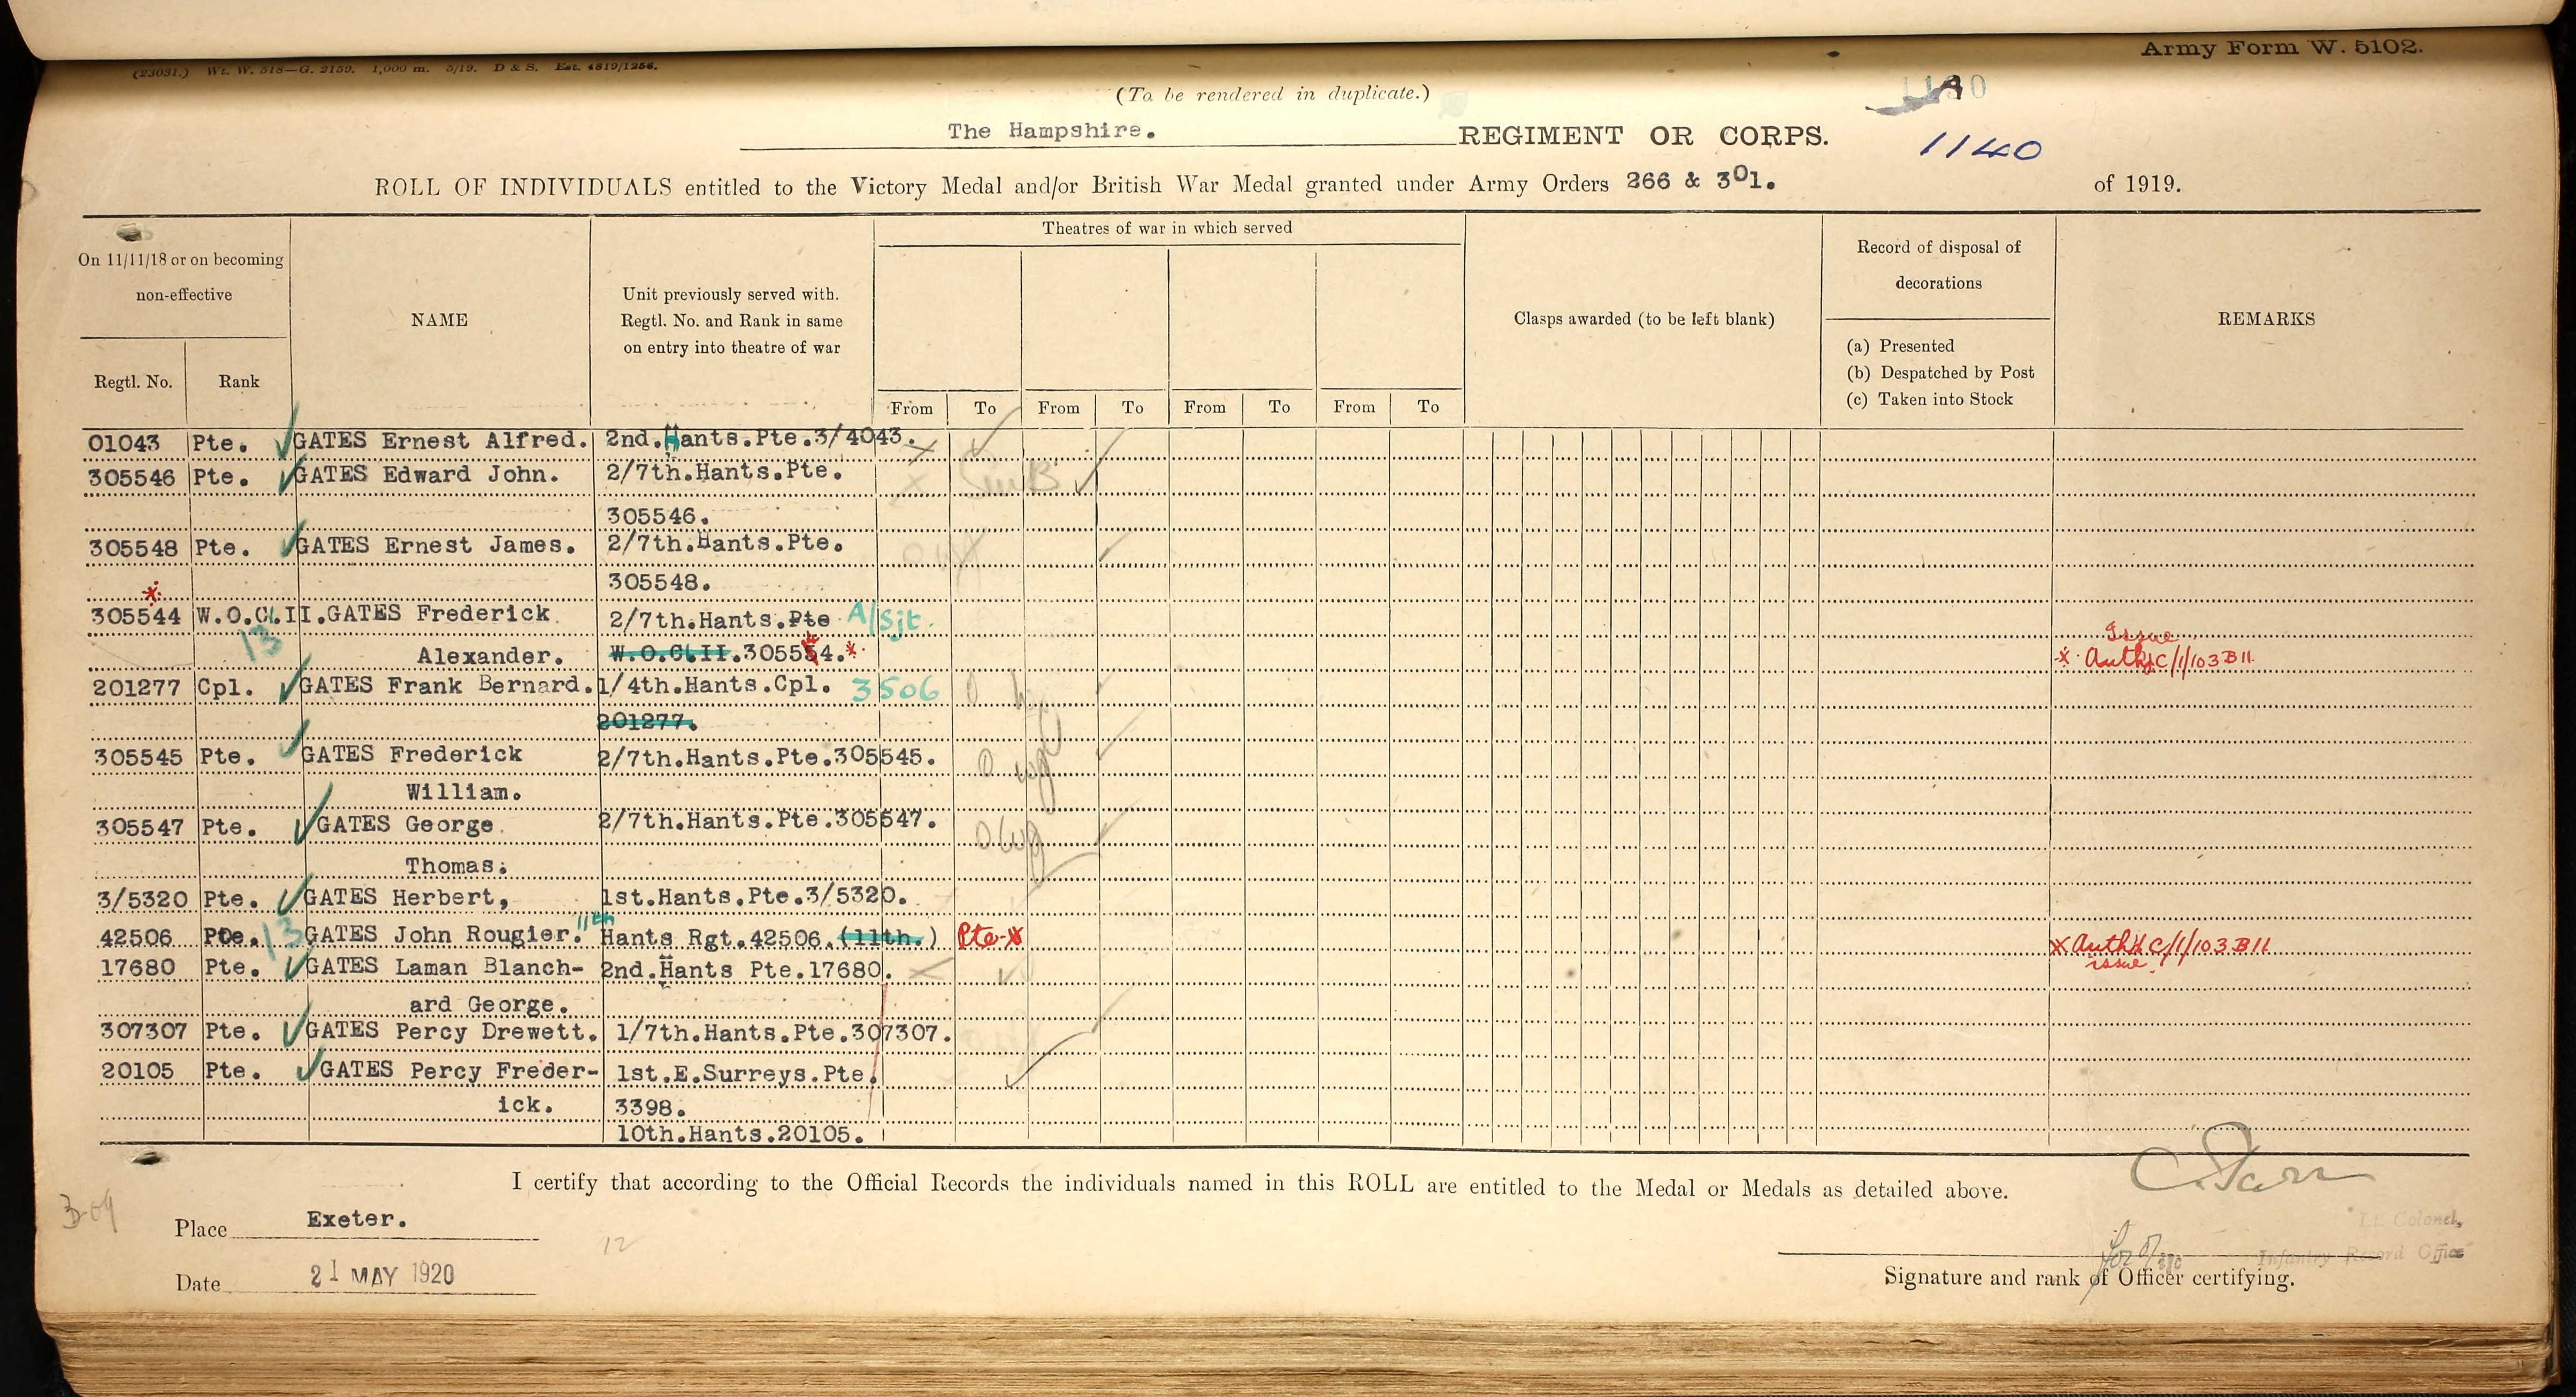 Army Form W. 5102.
(23031.) Wt. W. 518—G. 2159. 1,000 m. 5/19. D & S. Est. 4819/1256.
(To be rendered in duplicate.)
The Hampshire. REGIMENT OR CORPS.
1140
ROLL OF INDIVIDUALS entitled to the Victory Medal and/or British War Medal granted under Army Orders 266 & 301. of 1919.
On 11/11/18 or on becoming non-effective
Regtl. No. Rank
NAME
Unit previously served with.
Regtl. No. and Rank in same
on entry into theatre of war
Theatres of war in which served
From To From To From To From To
Clasps awarded (to be left blank)
Record of disposal of
decorations
(a) Presented
(b) Despatched by Post
(c) Taken into Stock
REMARKS
01043 Pte. GATES Ernest Alfred. 2nd.Hants.Pte.3/4043.
305546 Pte. GATES Edward John. 2/7th.Hants.Pte.
305546.
305548 Pte. GATES Ernest James. 2/7th.Hants.Pte.
305548.
305544 W.O.Cl.II. GATES Frederick 2/7th.Hants.Pte A/Sjt.
13 Alexander. W.O.Cl.II.305554.* Issue
* Auth C/1/103 B 11.
201277 Cpl. GATES Frank Bernard. 1/4th.Hants.Cpl. 3506
201277.
305545 Pte. GATES Frederick 2/7th.Hants.Pte.305545.
William.
305547 Pte. GATES George 2/7th.Hants.Pte.305547.
Thomas.
3/5320 Pte. GATES Herbert, 1st.Hants.Pte.3/5320.
11th
42506 Pte. 13 GATES John Rougier. Hants Rgt.42506.(11th.) Pte * X Auth C/1/103 B 11
issue
17680 Pte. GATES Laman Blanch- 2nd.Hants Pte.17680.
ard George.
307307 Pte. GATES Percy Drewett. 1/7th.Hants.Pte.307307.
20105 Pte. GATES Percy Freder- 1st.E.Surreys.Pte.
ick. 3398.
10th.Hants.20105.
I certify that according to the Official Records the individuals named in this ROLL are entitled to the Medal or Medals as detailed above.
Place Exeter.
12
Date 21 MAY 1920
Lt. Colonel,
Infantry Record Office
Signature and rank of Officer certifying.